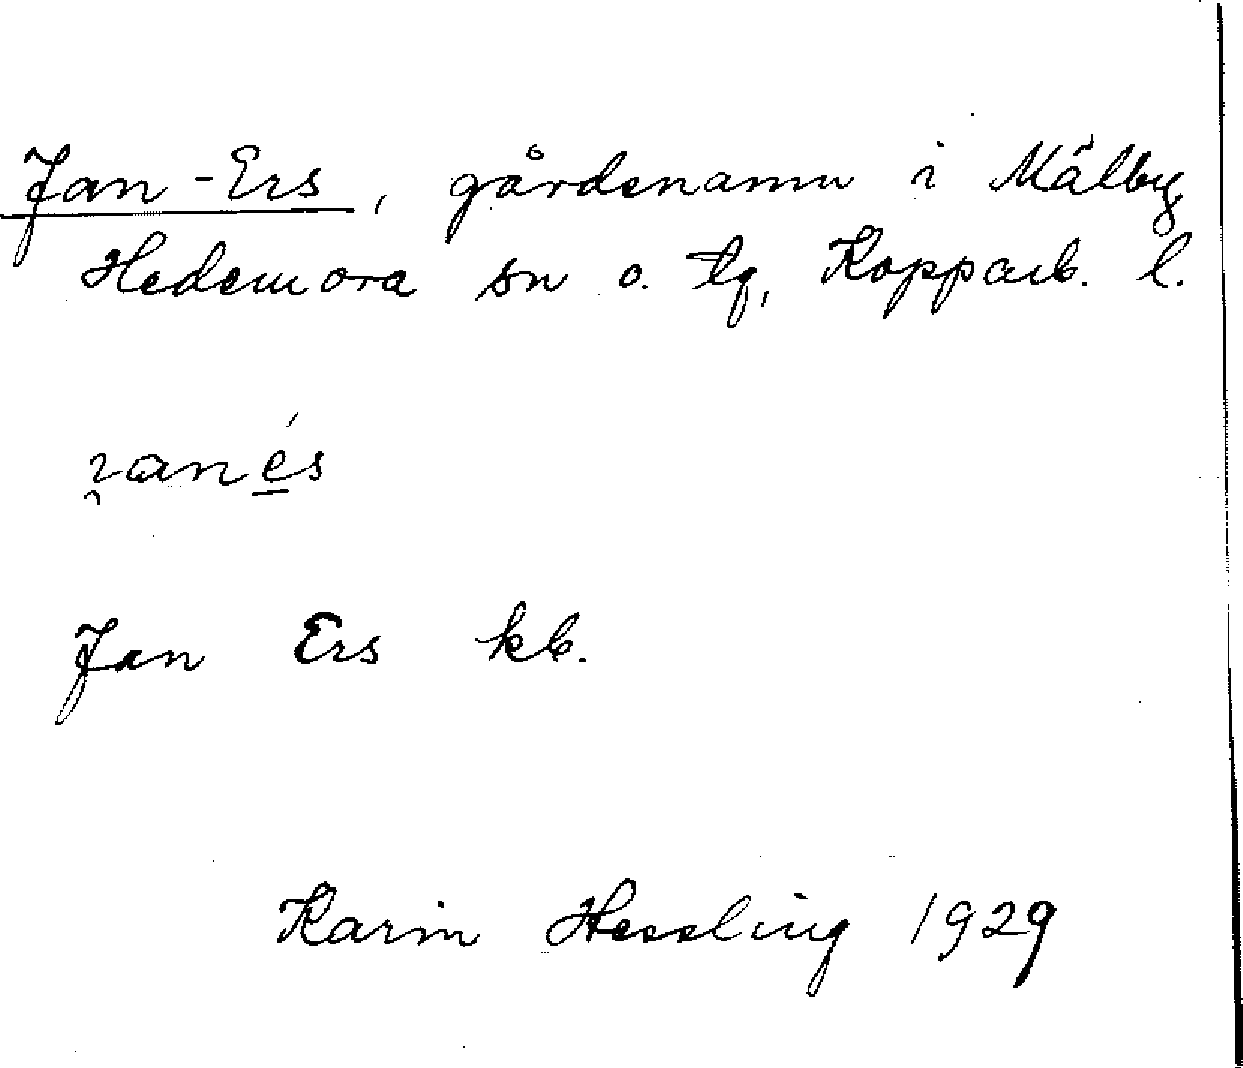 Jan-Ers, gårdsnamn i Mälby
Hedemora sn o. tg, Kopparb. l.
Jan Ers kb.
Karin Hessling 1929